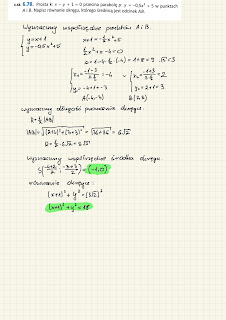 6.78. Prosta k: x – y + 1 = 0 przecina parabolę p: y = –0,5x² + 5 w punktach
A i B. Napisz równanie okręgu, którego średnicą jest odcinek AB.
Wyznaczamy współrzędne punktów A i B.
{ y = x+1
y = -0,5x²+5
x+1 = -½x²+5
½x²+x-4=0
Δ = 1-4·½·(-4) = 1+8 = 9 √Δ=3
{ x₁ = (-1-3)/(2·½) = -4 ∨ { x₂ = (-1+3)/(2·½) = 2
y₁ = -4+1 = -3 y₂ = 2+1 = 3
A(-4,-3) B(2,3)
Wyznaczamy długość promienia okręgu.
R = ½|AB|
|AB| = √((2+4)²+(3+3)²) = √(36+36) = 6√2
R = ½·6√2 = 3√2
Wyznaczamy współrzędne środka okręgu.
S((-4+2)/2, (-3+3)/2) = (-1,0)
równanie okręgu:
(x+1)² + y² = (3√2)²
(x+1)² + y² = 18